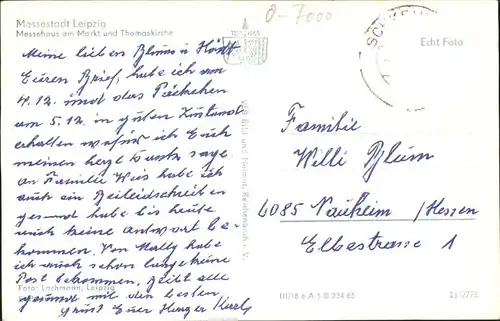 Messestadt Leipzig
Messehaus am Markt und Thomaskirche
0-7000
Echt Foto
Meine lieben Blums u
Euren Brief, habe ich am
4.12. und das Päckchen
am 5.12. in guten Zustand
erhalten wofür ich Euch
meinen herzl Dank sage
an Familie Weis habe ich
auch ein Beileidschreiben
gesand habe bis heute
auch keine Antwort be-
kommen. Von Molly habe
ich auch schon lange keine
Post bekommen, seid alle
gesund mit den besten
Gruß Euer Karl
Familie
Willi Blum
6085 Nauheim /Hessen
Elbestrasse 1
VEB Bild und Heimat, Reichenbach i. V.
Foto: Lachmann, Leipzig
III/18 6 A 1 B 234 65